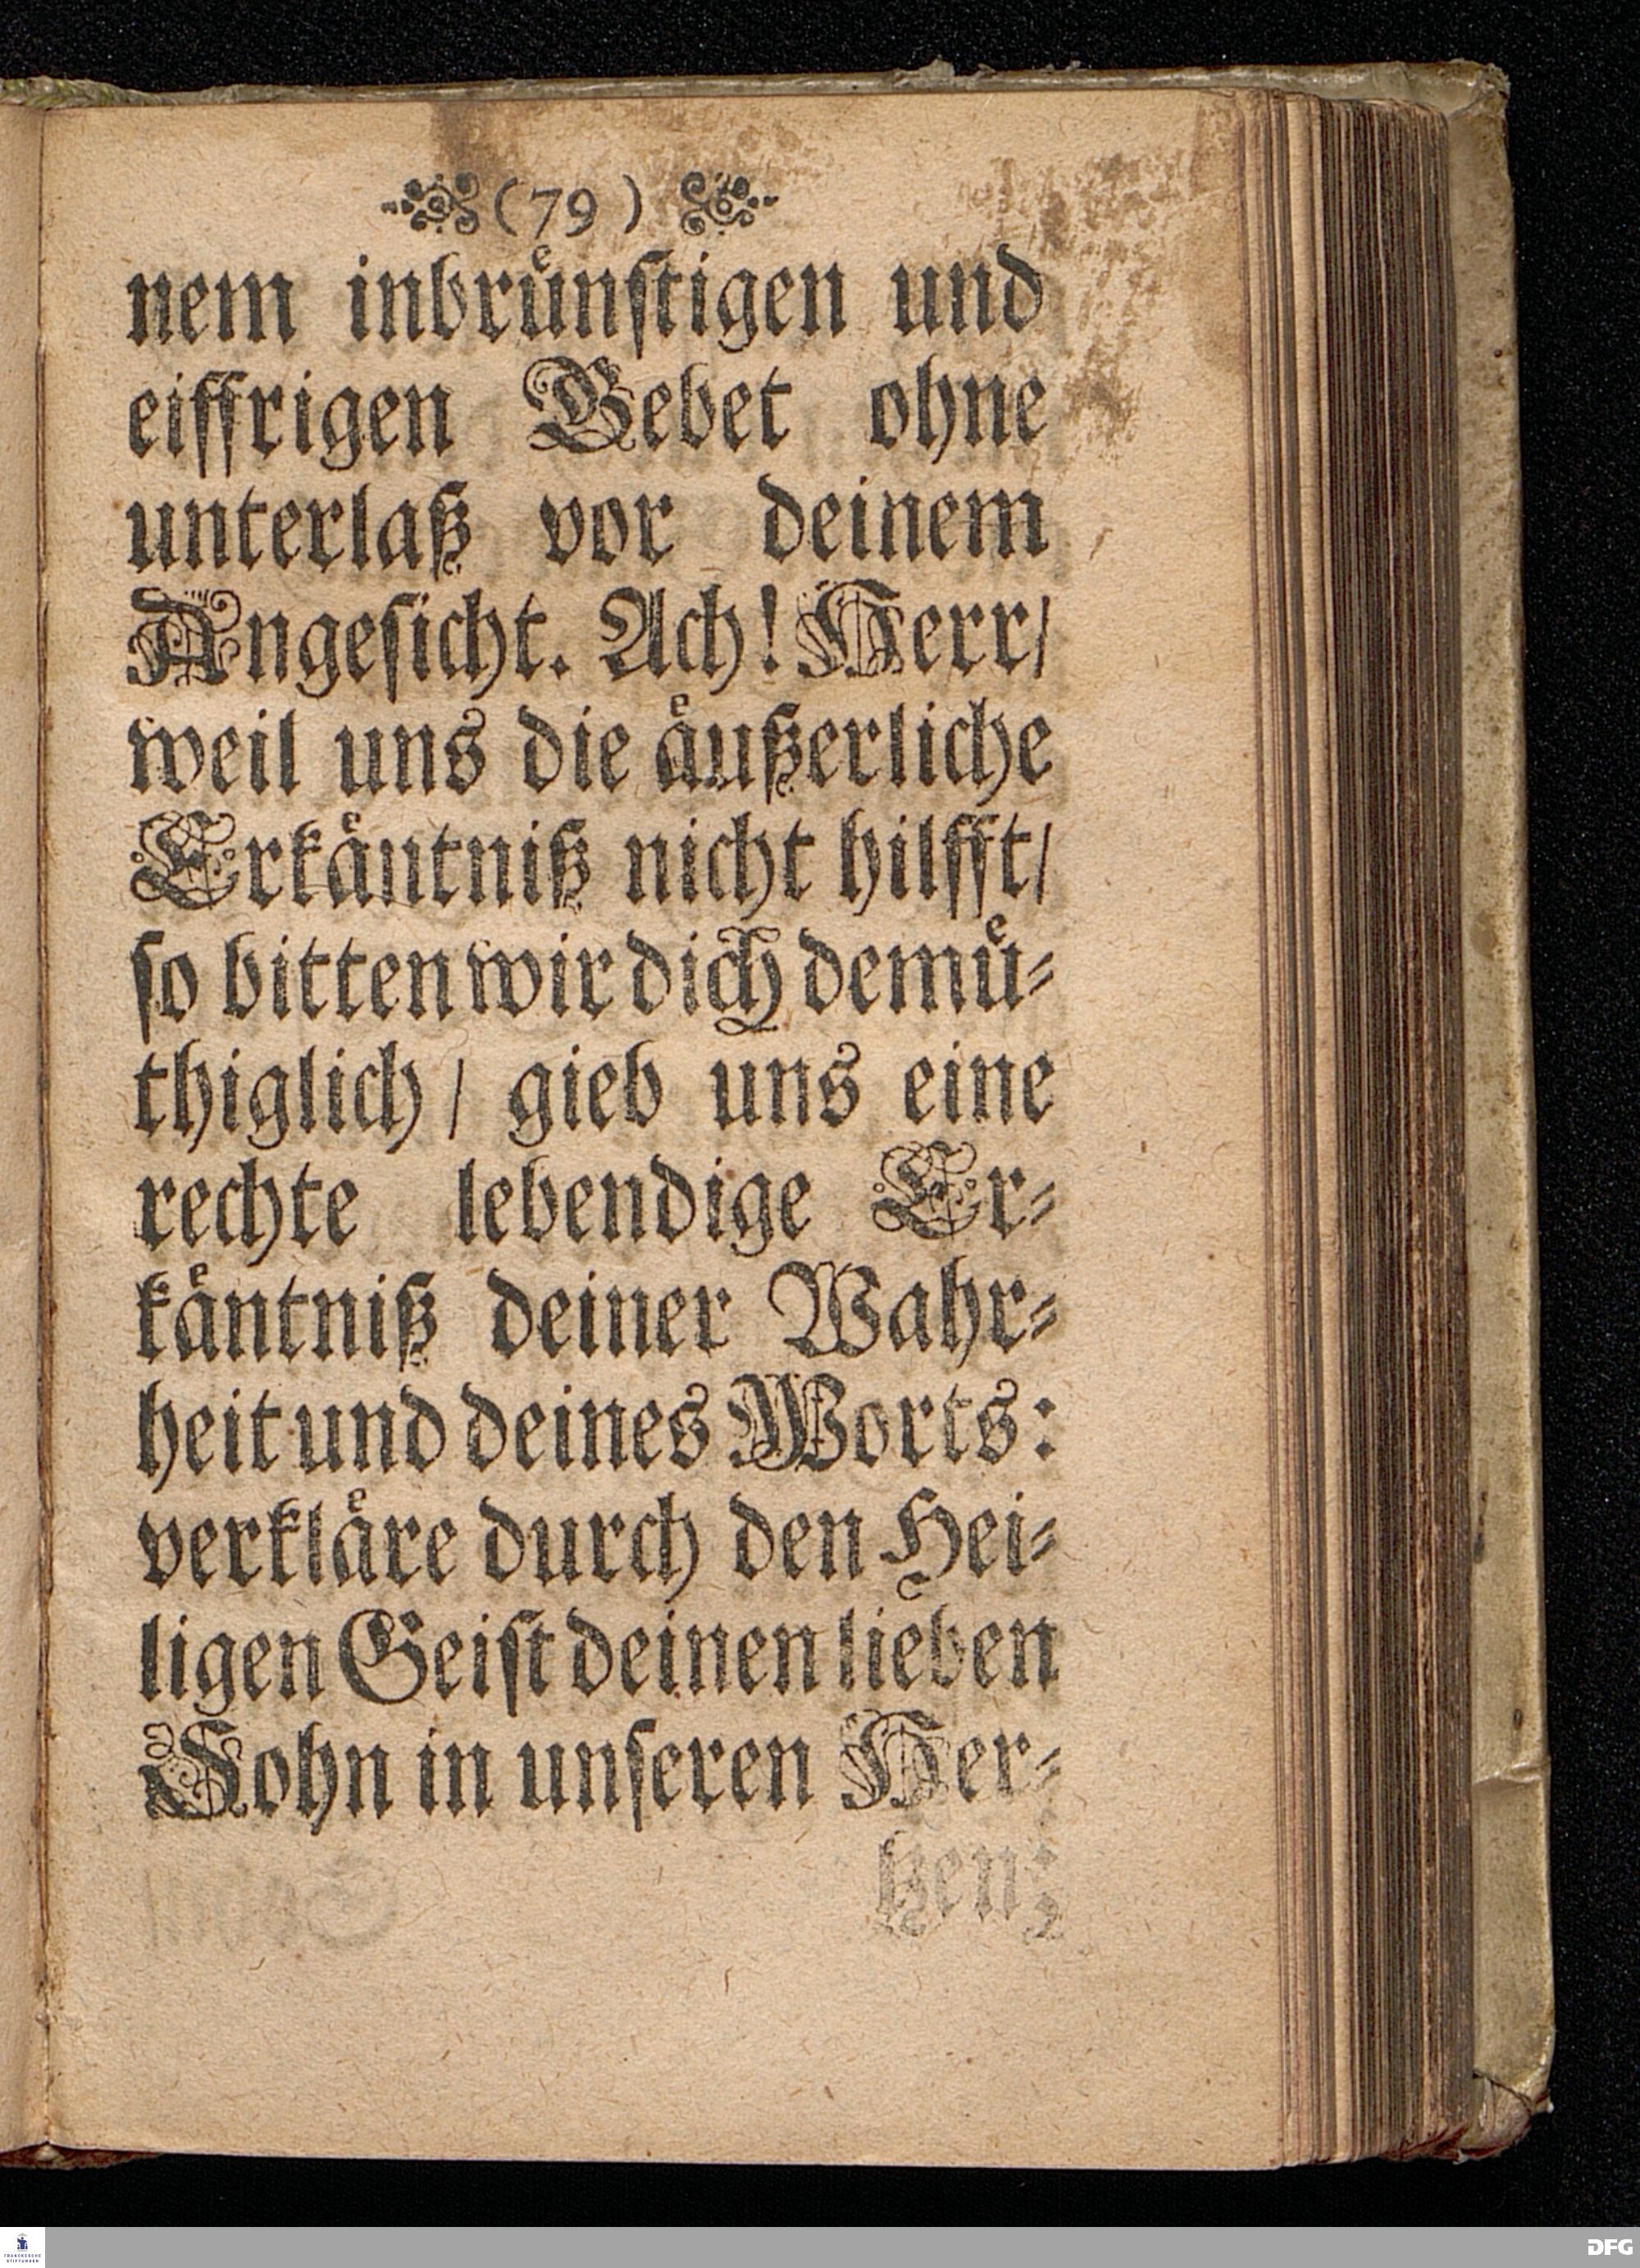 (79)
nem inbrünstigen und
eiffrigen Gebet ohne
unterlaß vor deinem
Angesicht. Ach! Herr/
weil uns die äußerliche
Erkäntniß nicht hilfft/
so bitten wir dich demü-
thiglich / gieb uns eine
rechte lebendige Er-
käntniß deiner Wahr-
heit und deines Worts:
verkläre durch den Hei-
ligen Geist deinen lieben
Sohn in unseren Her-
tzen;
FRANCKESCHE STIFTUNGEN
DFG